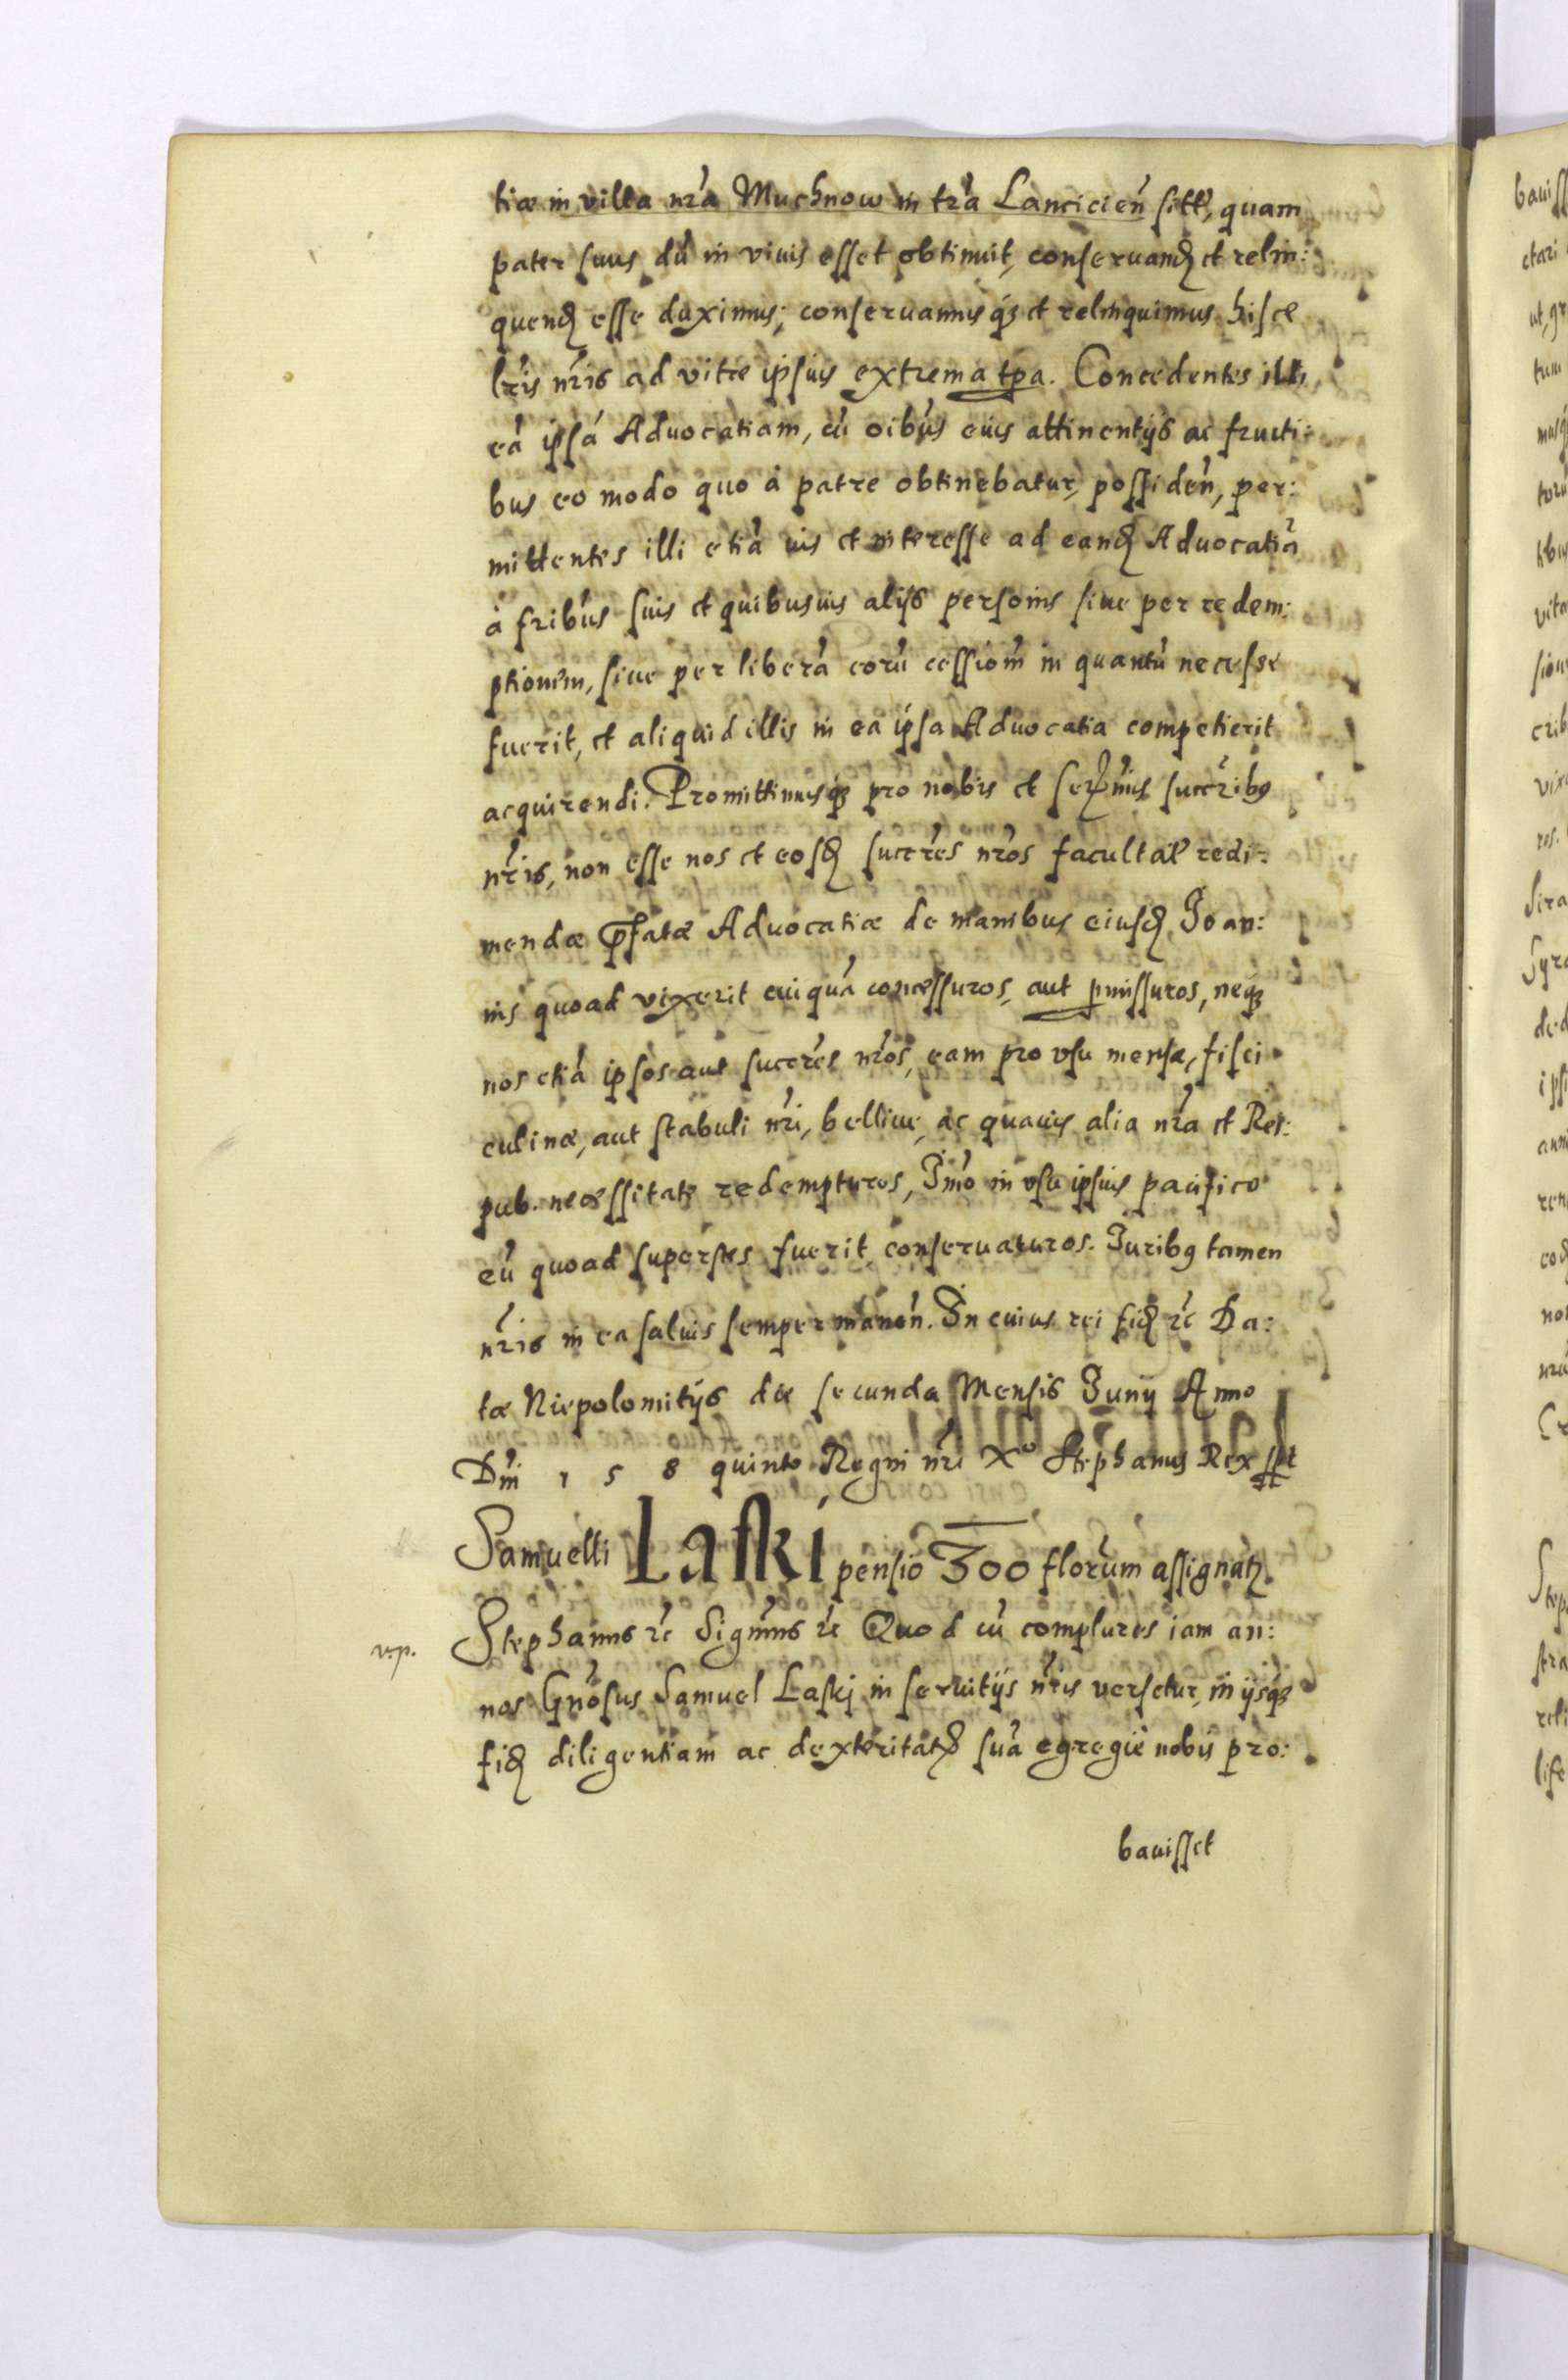 tiæ in villa nr̃a Muchnow in tr̃a Lanciciẽn sitẽ, quam
pater suus dũ in viuis esset obtinuit, conseruandꝫ et relin:
quendꝫ esse duximus; conseruamusqꝫ et relinquimus hisce
lr̃is nr̃is ad vitæ ipsius extrema tp̃a. Concedentes illi
eã ipsã Aduocatiam, cũ oĩbus eius attinentijs ac fructi:
bus eo modo quo à patre obtinebatur, possidẽn, per:
mittentes illi etiã ius et interesse ad eandꝫ Aduocatiã
à fr̃ibus suis et quibusuis alijs persoñis siue per redem:
ptionẽm, siue per liberã eorũ cessioñm in quantũ necesse
fuerit, et aliquid illis in ea ipsa Aduocatia competierit
acquirendi. Promittimusqꝫ pro nobis et Serẽmis succr̃ibꝯ
nr̃is, non esse nos et eosdꝫ succr̃es nr̃os facultatẽ redi:
mendæ p̃fatæ Aduocatiæ de manibus eiusdꝫ Joan:
nis quoad vixerit cuiquã concessuros, aut ꝑmissuros, neqꝫ
nos etiã ipsos aut succr̃es nr̃os, eam pro vsu mensæ, fisci
culinæ, aut stabuli nr̃i, belliue, ac quauis alia nr̃a et Rei:
pub. necessitate redempturos, Im̃o in vsu ipsius pacifico
eũ quoad superstes fuerit conseruaturos. Juribꝯ tamen
nr̃is in ea saluis semper manẽn. In cuius rei fidꝫ ꝛc̃ Da:
tæ Niepolomitijs die secunda Mensis Junij Anno
Dñi 1 5 8 quinto Regni nr̃i X° Stephanus Rex sst
Samuelli Laski pensio 300 florũm assignatꝫ.
v.p. Stephanus ꝛc̃ Signm̃us ꝛc̃ Quod cũ complures iam an:
nos Gnõsus Samuel Laskj in seruitijs nr̃is versetur, in ijsqꝫ
fidꝫ diligentiam ac dexteritatẽ suã egregiè nobis pro:
bauisset